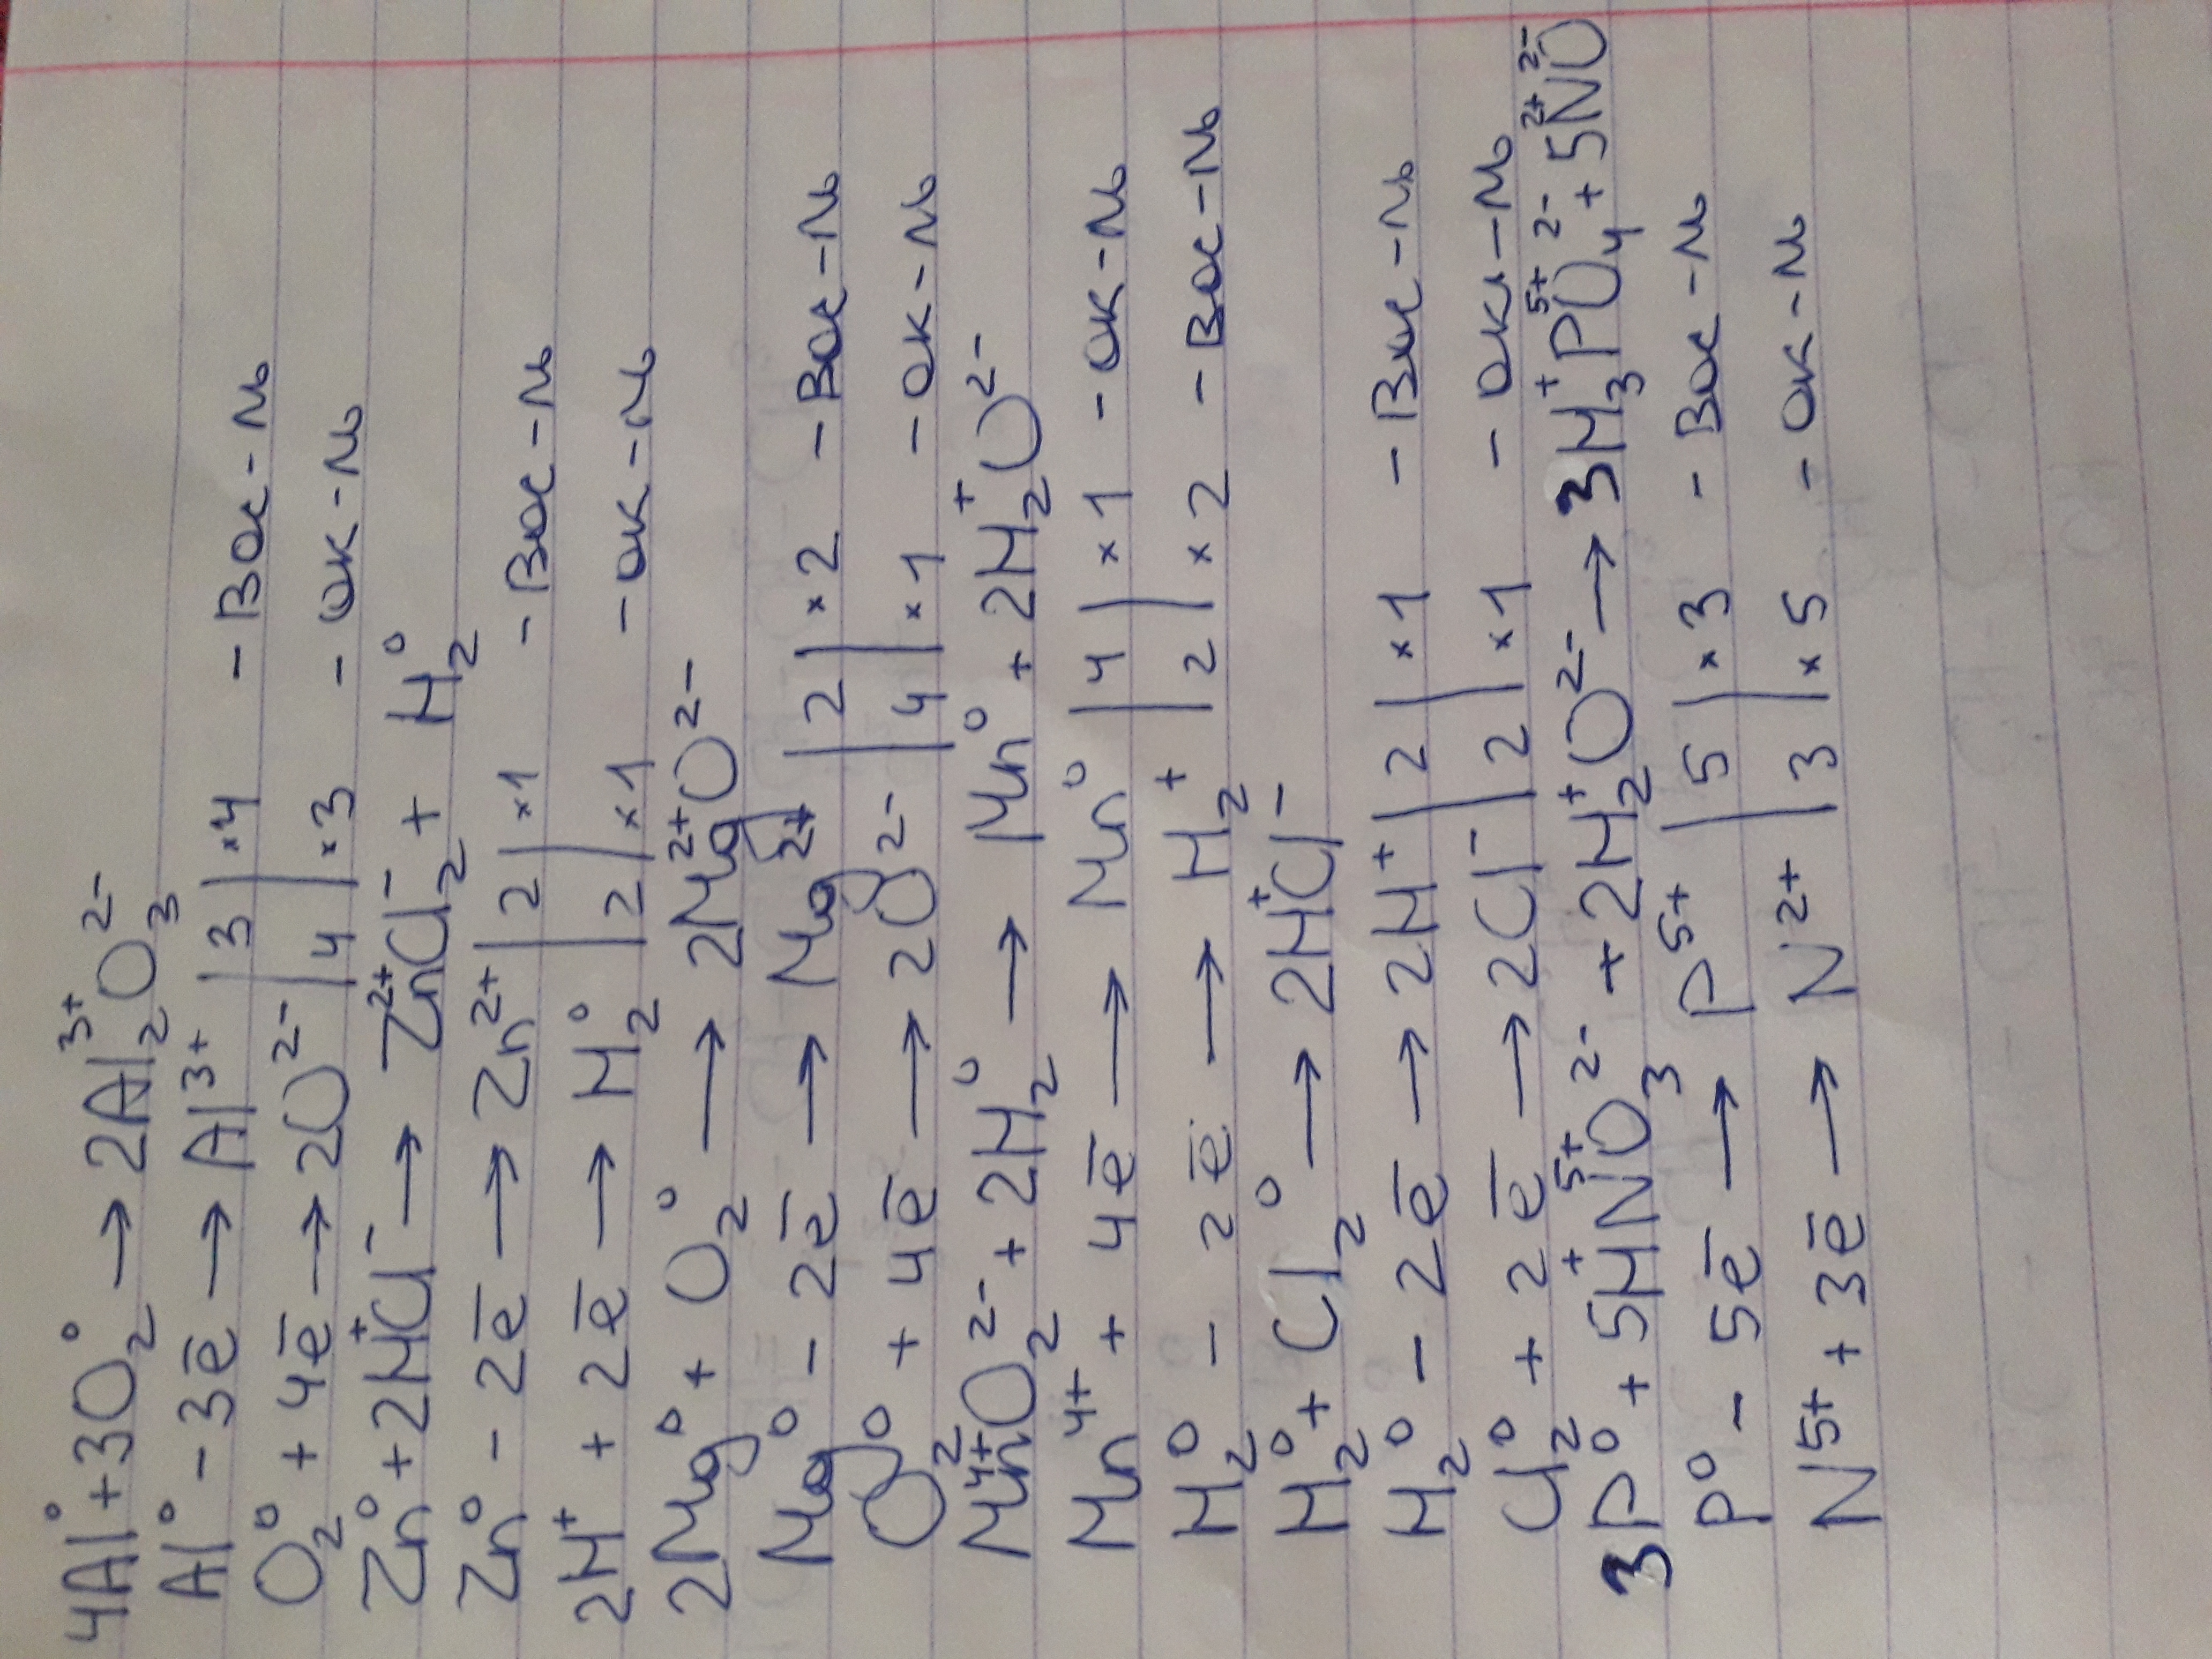 4Al⁰ + 3O₂⁰ → 2Al₂³⁺O₃²⁻
Al⁰ - 3ē → Al³⁺ | 3 | ×4 - Вос-ль
O₂⁰ + 4ē → 2O²⁻ | 4 | ×3 - ок-ль
Zn⁰ + 2H⁺Cl⁻ → Zn²⁺Cl₂⁻ + H₂⁰
Zn⁰ - 2ē → Zn²⁺ | 2 | ×1 - Вос-ль
2H⁺ + 2ē → H₂⁰ | 2 | ×1 - ок-ль
2Mg⁰ + O₂⁰ → 2Mg²⁺O²⁻
Mg⁰ - 2ē → Mg²⁺ | 2 | ×2 - Вос-ль
O₂⁰ + 4ē → 2O²⁻ | 4 | ×1 - ок-ль
Mn⁴⁺O₂²⁻ + 2H₂⁰ → Mn⁰ + 2H₂⁺O²⁻
Mn⁴⁺ + 4ē → Mn⁰ | 4 | ×1 - ок-ль
H₂⁰ - 2ē → H₂⁺ | 2 | ×2 - Вос-ль
H₂⁰ + Cl₂⁰ → 2H⁺Cl⁻
H₂⁰ - 2ē → 2H⁺ | 2 | ×1 - Вос-ль
Cl₂⁰ + 2ē → 2Cl⁻ | 2 | ×1 - ок-ль
3P⁰ + 5H⁺N⁵⁺O₃²⁻ + 2H₂⁺O²⁻ → 3H₃⁺P⁵⁺O₄²⁻ + 5N²⁺O²⁻
P⁰ - 5ē → P⁵⁺ | 5 | ×3 - Вос-ль
N⁵⁺ + 3ē → N²⁺ | 3 | ×5 - ок-ль